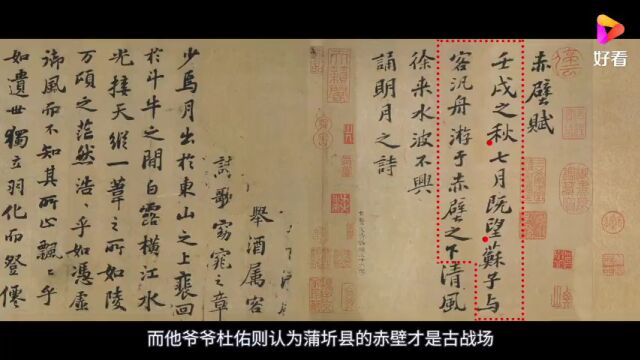 好看
赤壁賦
壬戌之秋七月既望蘇子與
客汎舟游于赤壁之下清風
徐來水波不興
誦明月之詩
舉酒属客
歌窈窕之章
少焉月出於東山之上裵回
於斗牛之間白露橫江水
光接天縱一葦之所如陵
万頃之茫然浩〻乎如憑虛
御風而不知其所止飄〻乎
如遺世獨立羽化而登僊
而他爷爷杜佑则认为蒲圻县的赤壁才是古战场